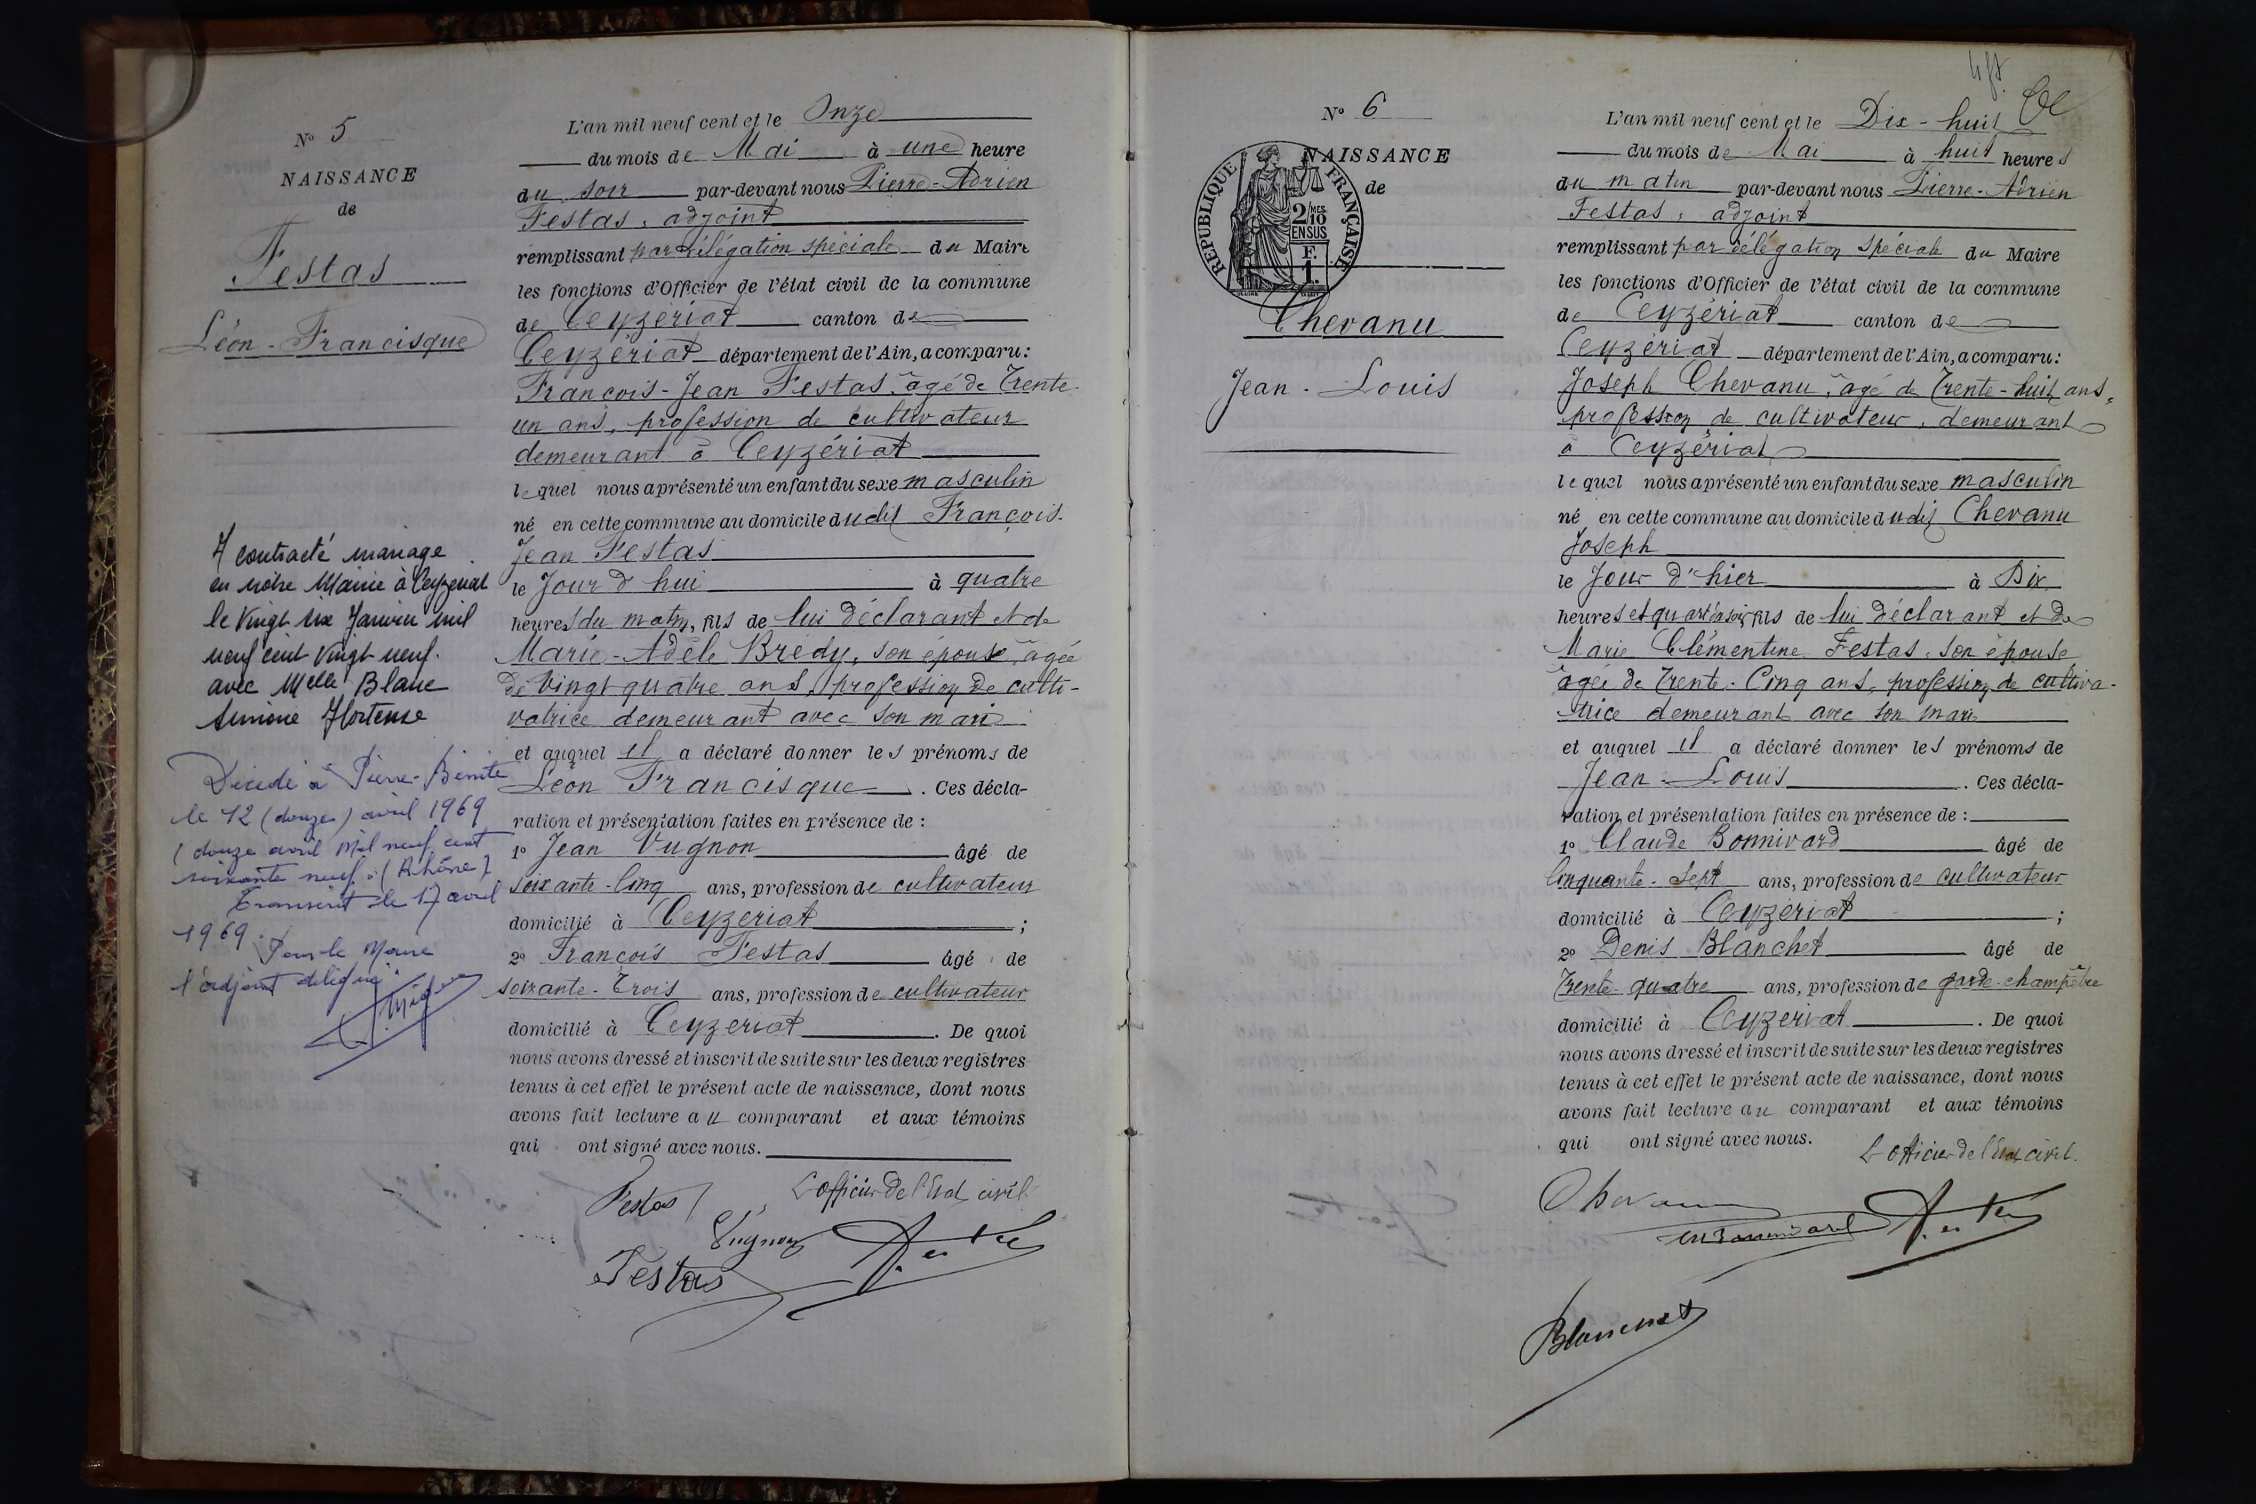 N° 5
NAISSANCE
de
Festas
Léon-Francisque
A contracté mariage
en notre Mairie à Ceyzériat
le vingt six Janvier mil
neuf cent vingt neuf.
avec Melle Blanc
Simone Hortense
Décédé à Pierre-Bénite
le 12 (douze) avril 1969
(douze avril mil neuf cent
soixante neuf à (Rhône)
Transcrit le 17 avril
1969.
Pour le Maire
l'adjoint délégué
L'an mil neuf cent et le Onze
du mois de Mai à une heure
du soir par-devant nous Pierre-Adrien
Festas, adjoint
remplissant par délégation spéciale du Maire
les fonctions d'Officier de l'état civil de la commune
de Ceyzériat canton de
Ceyzériat département de l'Ain, a comparu:
François-Jean Festas, âgé de Trente-
un ans, profession de cultivateur
demeurant à Ceyzériat
lequel nous a présenté un enfant du sexe masculin
né en cette commune au domicile dudit François-
Jean Festas
le Jour d'hui à quatre
heures du matin, fils de lui déclarant et de
Marie-Adèle Brédy, son épouse, âgée
de Vingt quatre ans, profession de culti-
vatrice demeurant avec son mari
et auquel il a déclaré donner les prénoms de
Léon Francisque. Ces décla-
ration et présentation faites en présence de :
1° Jean Vugnon âgé de
soixante-cinq ans, profession de cultivateur
domicilié à Ceyzeriat ;
2° François Festas âgé de
soixante-Trois ans, profession de cultivateur
domicilié à Ceyzeriat. De quoi
nous avons dressé et inscrit de suite sur les deux registres
tenus à cet effet le présent acte de naissance, dont nous
avons fait lecture au comparant et aux témoins
qui ont signé avec nous.
L'officier de l'Etat civil
Festas
Vugnon
Festas
N° 6
NAISSANCE
de
REPUBLIQUE FRANÇAISE
2/10 MES
EN SUS
F.
1.
Chevanu
Jean-Louis
L'an mil neuf cent et le Dix-huit
du mois de Mai à huit heures
du matin par-devant nous Pierre-Adrien
Festas, adjoint
remplissant par délégation spéciale du Maire
les fonctions d'Officier de l'état civil de la commune
de Ceyzériat canton de
Ceyzériat département de l'Ain, a comparu:
Joseph Chevanu, âgé de Trente-huit ans,
profession de cultivateur, demeurant
à Ceyzériat
lequel nous a présenté un enfant du sexe masculin
né en cette commune au domicile dudit Chevanu
Joseph
le Jour d'hier à Dix
heures et quart du soir, fils de lui déclarant et de
Marie Clémentine Festas, son épouse
âgée de Trente-Cinq ans, profession de cultiva-
trice demeurant avec son mari
et auquel il a déclaré donner les prénoms de
Jean-Louis. Ces décla-
ration et présentation faites en présence de :
1° Claude Bonnivard âgé de
Cinquante-Sept ans, profession de cultivateur
domicilié à Ceyzériat ;
2° Denis Blanchet âgé de
Trente-quatre ans, profession de garde-champêtre
domicilié à Ceyzeriat. De quoi
nous avons dressé et inscrit de suite sur les deux registres
tenus à cet effet le présent acte de naissance, dont nous
avons fait lecture au comparant et aux témoins
qui ont signé avec nous.
L'officier de l'Etat civil.
Chevanu
Blanchet